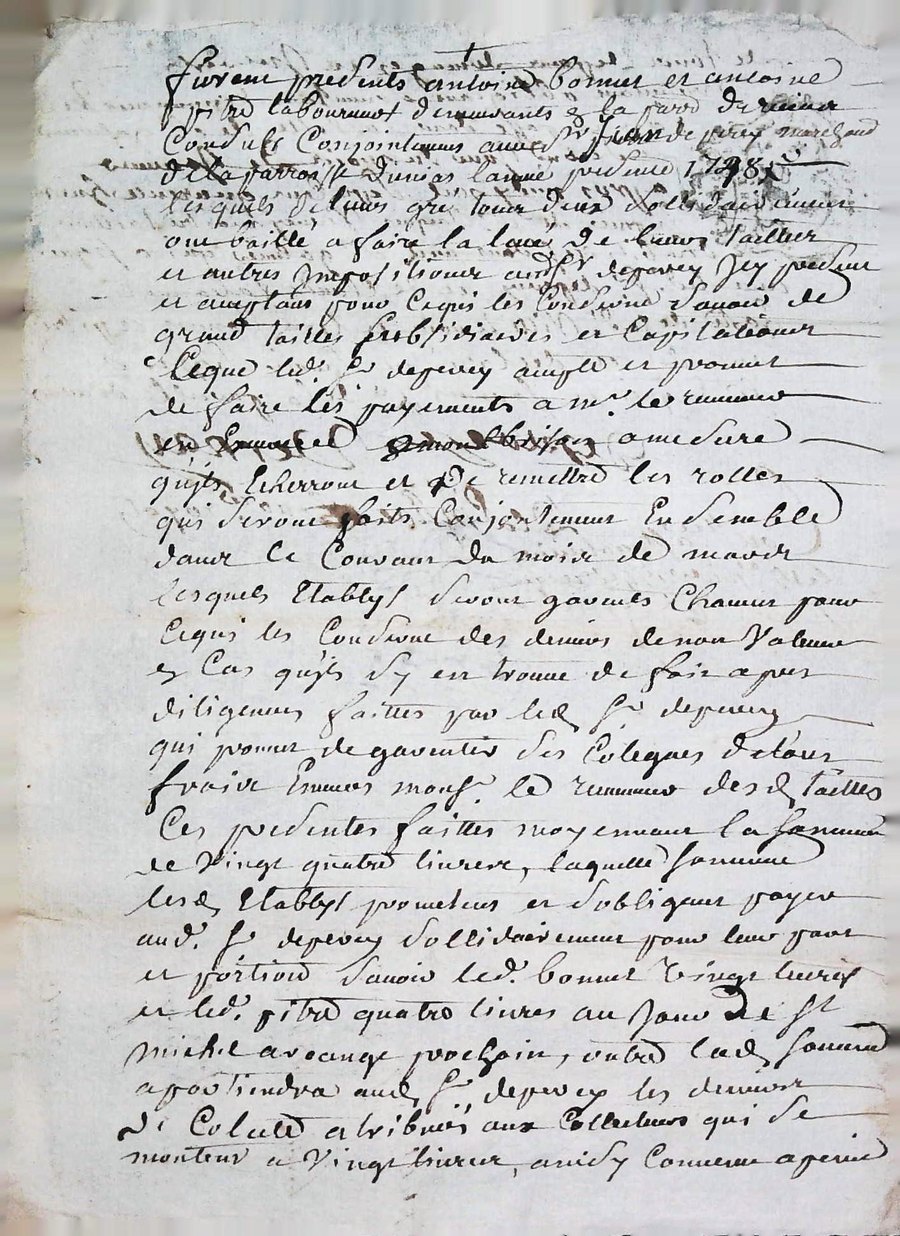 furent presents antoine bonnet et antoine
pitre laboureurs demeurants la parr. de
Consuls Conjointement avec Sr jean deperey marchand
de la parroisse l'année presente
lesquels de leurs gré tous deux sollidairement
ont baillé a faire la levé de leurs tailles
et autres Impositions aud. Sr deperey Icy present
et acceptant pour Cequi les Conserne savoir de
grand tailles subsidiaires et Capitations
Ceque led. Sr deperey accepte et promet
de faire les payements a mr. le receveur
en a mesure
qu'ils Echerront et de remettre les rolles
qui seront faits Conjointement Ensemble
dans le Courant du mois de mars
lesquels Etablys seront garents Chacun pour
Cequi les Conserne des deniers de non Valeur
en Cas qu'ils s'y en trouve de fair apres
diligences faittes par led. Sr deperey
qui promet de garentir ses Colegues de tous
fraix Envers monsr. le receveur desd. tailles
Ces presentes faittes moyennant la somme
de Vingt quatre livres, laquelle somme
lesd. Etablys prometent et s'obligent payer
aud. Sr deperey sollidairement pour leur part
et portion savoir led. bonnet Vingt livres
et led. pitre quatre livres au Jour de St
michel arcange prochain, outre lad. somme
apartiendra aud. Sr deperey les deniers
de Colete atribués aux Collecteurs qui se
montent a Vingt livres, ainsy Convenu a peine